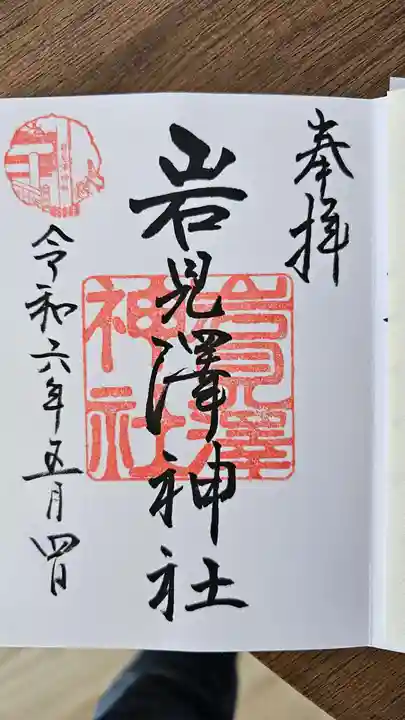 奉拝
岩見澤神社
岩見澤神社
令和六年五月四日